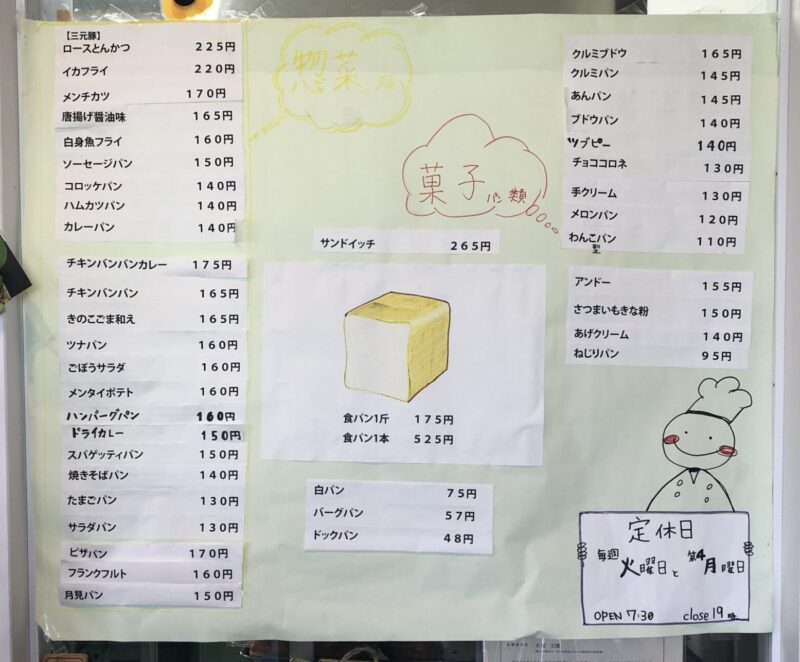 惣菜パン類
【三元豚】
ロースとんかつ 225円
イカフライ 220円
メンチカツ 170円
唐揚げ醤油味 165円
白身魚フライ 160円
ソーセージパン 150円
コロッケパン 140円
ハムカツパン 140円
カレーパン 140円
チキンバンバンカレー 175円
チキンバンバン 165円
きのこごま和え 165円
ツナパン 160円
ごぼうサラダ 160円
メンタイポテト 160円
ハンバーグパン 160円
ドライカレー 150円
スパゲッティパン 150円
焼きそばパン 140円
たまごパン 130円
サラダパン 130円
ピザパン 170円
フランクフルト 160円
月見パン 150円
サンドイッチ 265円
食パン1斤 175円
食パン1本 525円
白パン 75円
バーグパン 57円
ドックパン 48円
菓子パン類
クルミブドウ 165円
クルミパン 145円
あんパン 145円
ブドウパン 140円
ツブピー 140円
チョココロネ 130円
手クリーム 130円
メロンパン 120円
わんこパン 110円
型
アンドー 155円
さつまいもきな粉 150円
あげクリーム 140円
ねじりパン 95円
定休日
毎週火曜日と第4月曜日
OPEN 7:30 close 19時